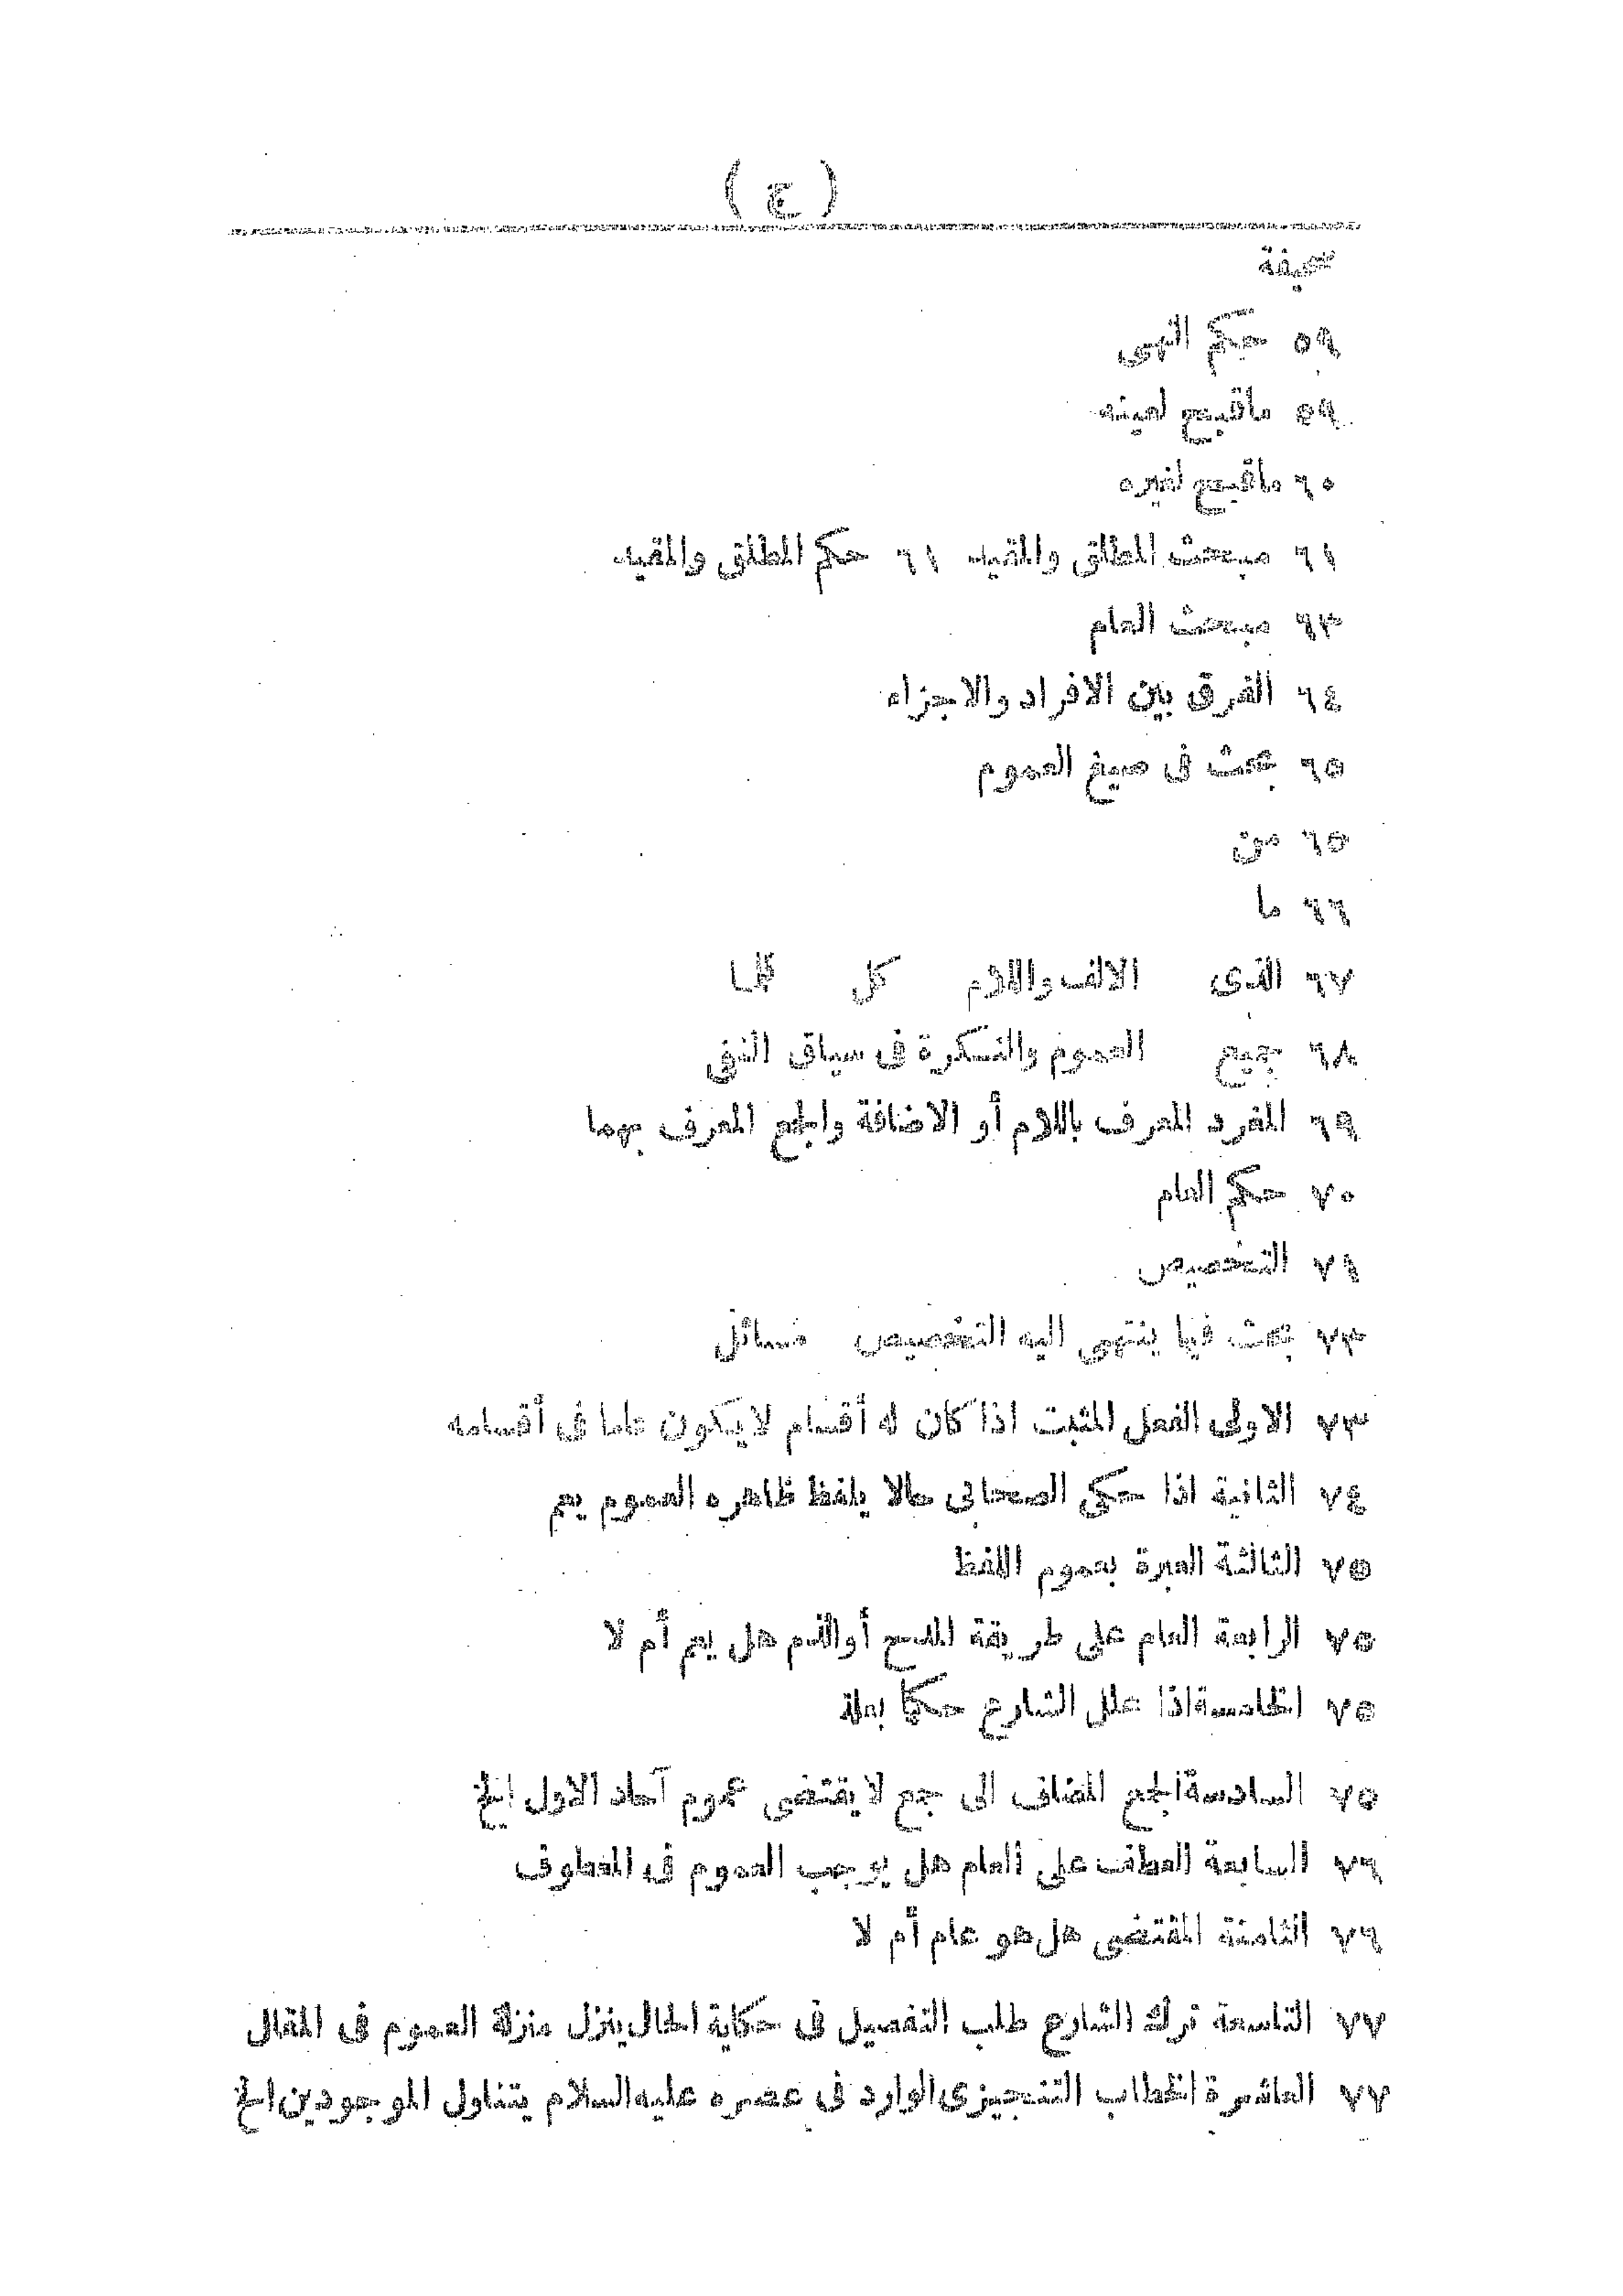 ( ج )
صحيفة
٥٩ حكم النهى
٥٩ ماقبح لعينه
٦٠ ماقبح لغيره
٦١ مبحث المطلق والمقيد ٦١ حكم المطلق والمقيد
٦٣ مبحث العام
٦٤ الفرق بين الافراد والاجزاء
٦٥ بحث فى صيغ العموم
٦٥ من
٦٦ ما
٦٧ الذى الالف واللام كل كلما
٦٨ جميع العموم والنكرة فى سياق النفى
٦٩ المفرد المعرف باللام أو الاضافة والجمع المعرف بهما
٧٠ حكم العام
٧١ التخصيص
٧٣ بحث فيما ينتهى اليه التخصيص مسائل
٧٣ الاولى الفعل المثبت اذا كان له أقسام لايكون عاما فى أقسامه
٧٤ الثانية اذا حكى الصحابى حالا بلفظ ظاهره العموم يعم
٧٥ الثالثة العبرة بعموم اللفظ
٧٥ الرابعة العام على طريقة المدح أوالذم هل يعم أم لا
٧٥ الخامسة اذا علل الشارع حكما بعلة
٧٥ السادسة الجمع المضاف الى جمع لايقتضى عموم آحاد الاول الخ
٧٦ السابعة العطف على العام هل يوجب العموم فى المعطوف
٧٦ الثامنة المقتضى هل هو عام أم لا
٧٧ التاسعة ترك الشارع طلب التفصيل فى حكاية الحال ينزل منزلة العموم فى المقال
٧٧ العاشرة الخطاب التنجيزى الوارد فى عصره عليه السلام يتناول الموجودين الخ